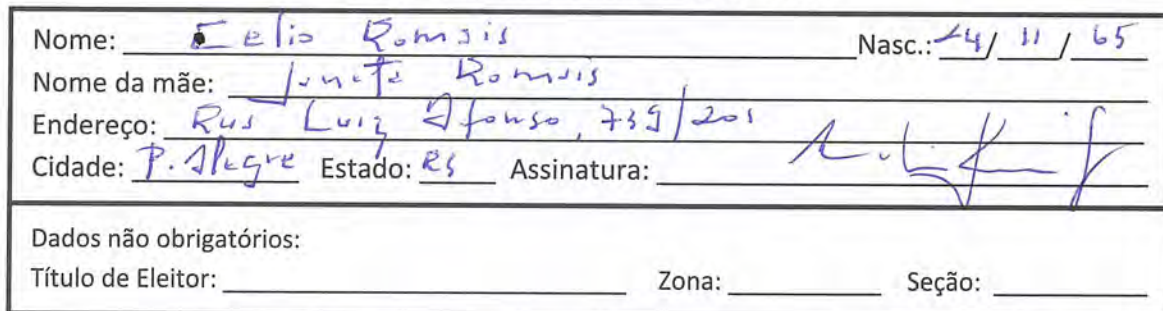 Nome: Celio Romais Nasc.: 24/ 11 / 65
Nome da mãe: Janete Romais
Endereço: Rua Luiz Afonso, 739/201
Cidade: P. Alegre Estado: RS Assinatura:
Dados não obrigatórios:
Título de Eleitor: Zona: Seção: